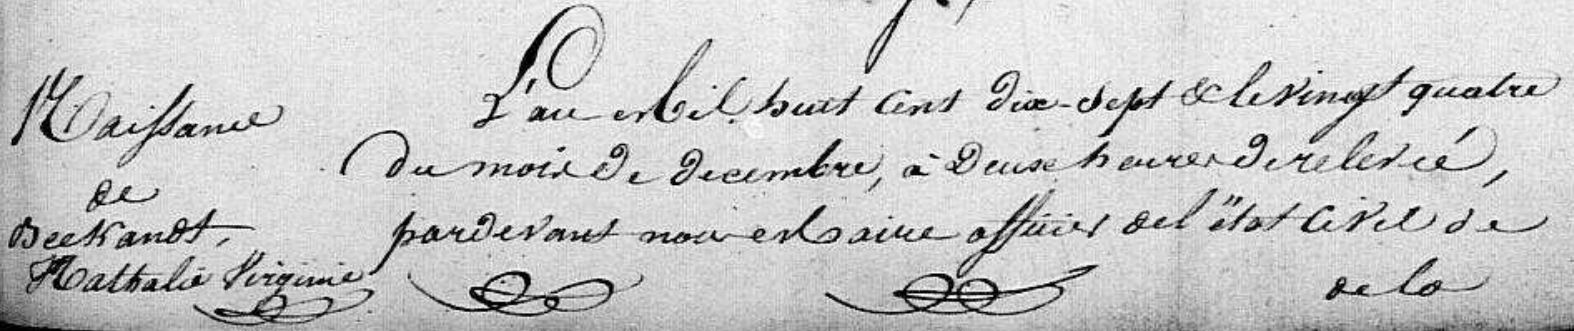 Naissance
de
Beekandt,
Nathalie Virginie
L'an Mil huit cent dix-sept & le vingt quatre
du mois de decembre, à Deux heures de relevée,
pardevant nous Maire officier de l'état Civil de
de la